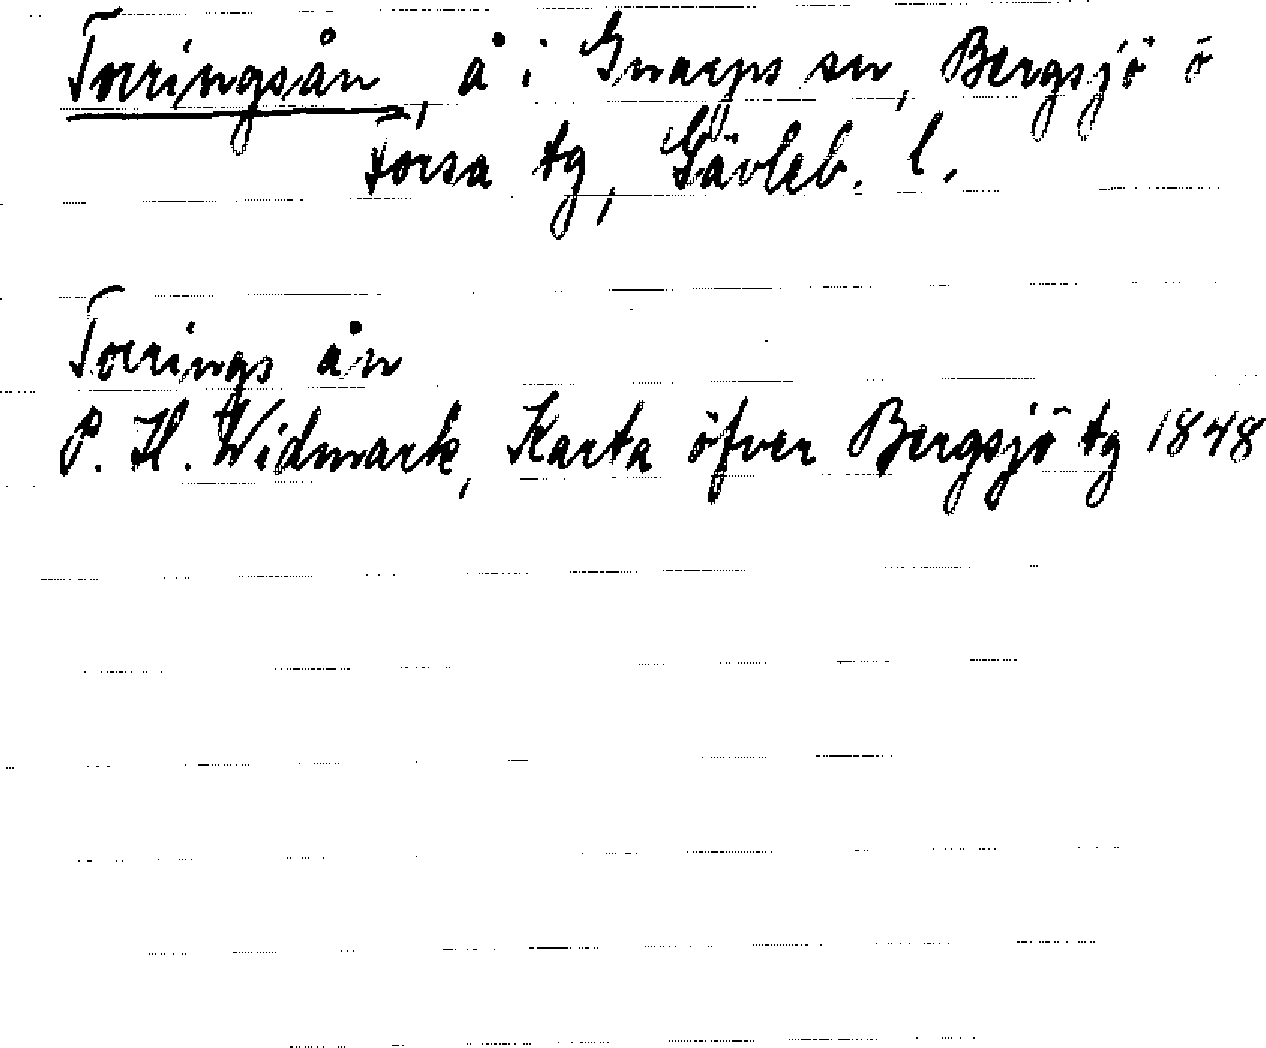 Torringsån, å i Gnarps sn, Bergsjö o
Forsa tg, Gävleb. l.
Torrings ån
P. H. Widmark, Karta öfver Bergsjö tg 1848